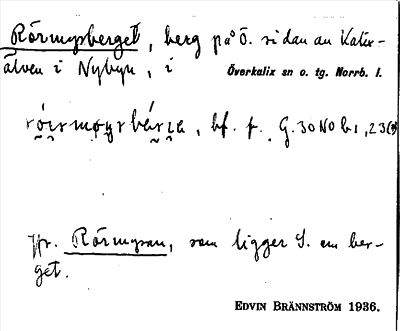 Rörmyrberget, berg på Ö. sidan av Kalix-
älven i Nybyn, i Överkalix sn o. tg. Norrb. l.
bf. f. G. 30 NO b 1, 23
Jfr. Rörmyran, som ligger S. om ber-
get.
EDVIN BRÄNNSTRÖM 1936.